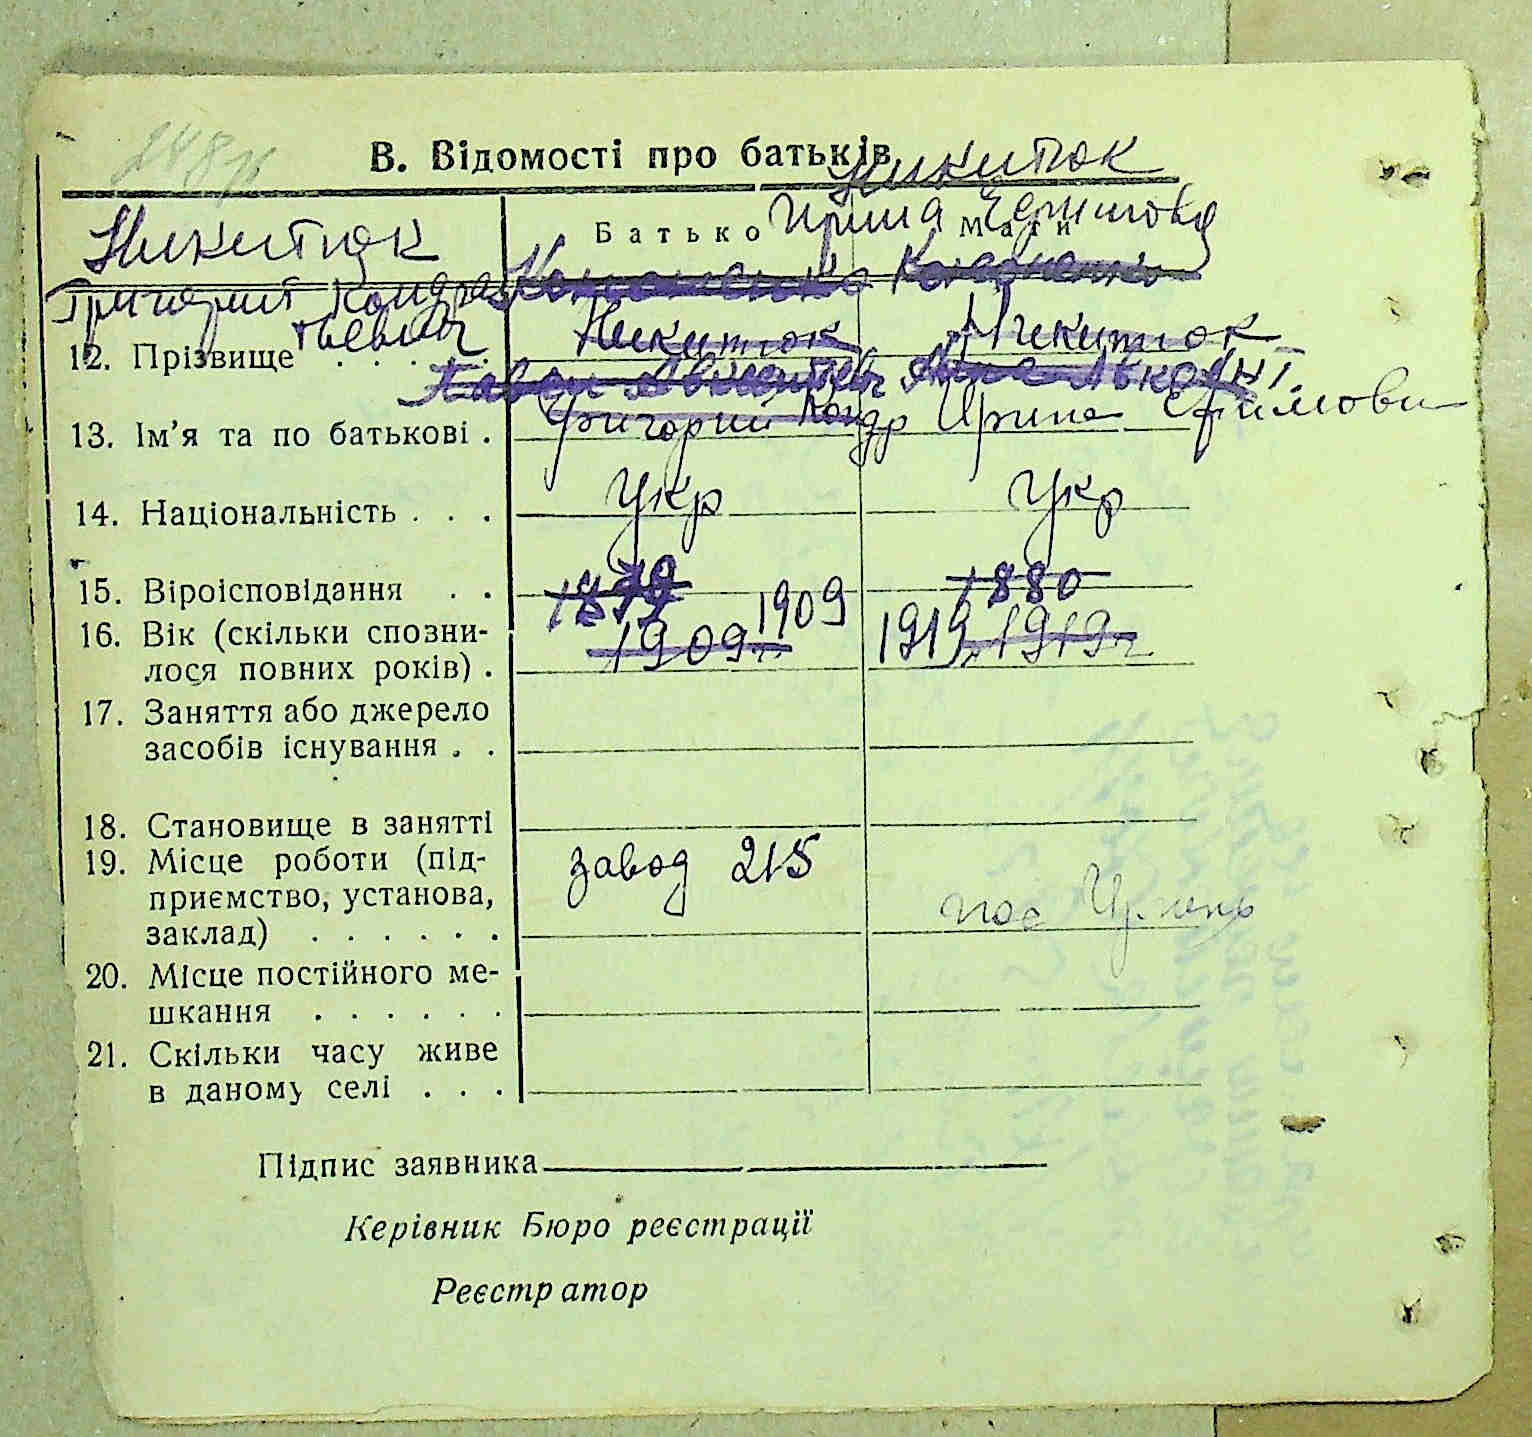 В. Відомості про батьків
Никитюк
Ирина Ефимовна
Никитюк
Батько Мати
Григорий Кондратьевич
12. Прізвище Никитюк Никитюк
13. Ім'я та по батькові Григорий Кондр Ирина Ефимовн
14. Національність укр укр
15. Віроісповідання 1879 1880
1909 1919
16. Вік (скільки сповни-
лося повних років) 1909 1919г
17. Заняття або джерело
засобів існування
18. Становище в занятті
19. Місце роботи (під-
приємство, установа,
заклад) завод 215
20. Місце постійного ме-
шкання
21. Скільки часу живе
в даному селі
Підпис заявника
Керівник Бюро реєстрації
Реєстратор